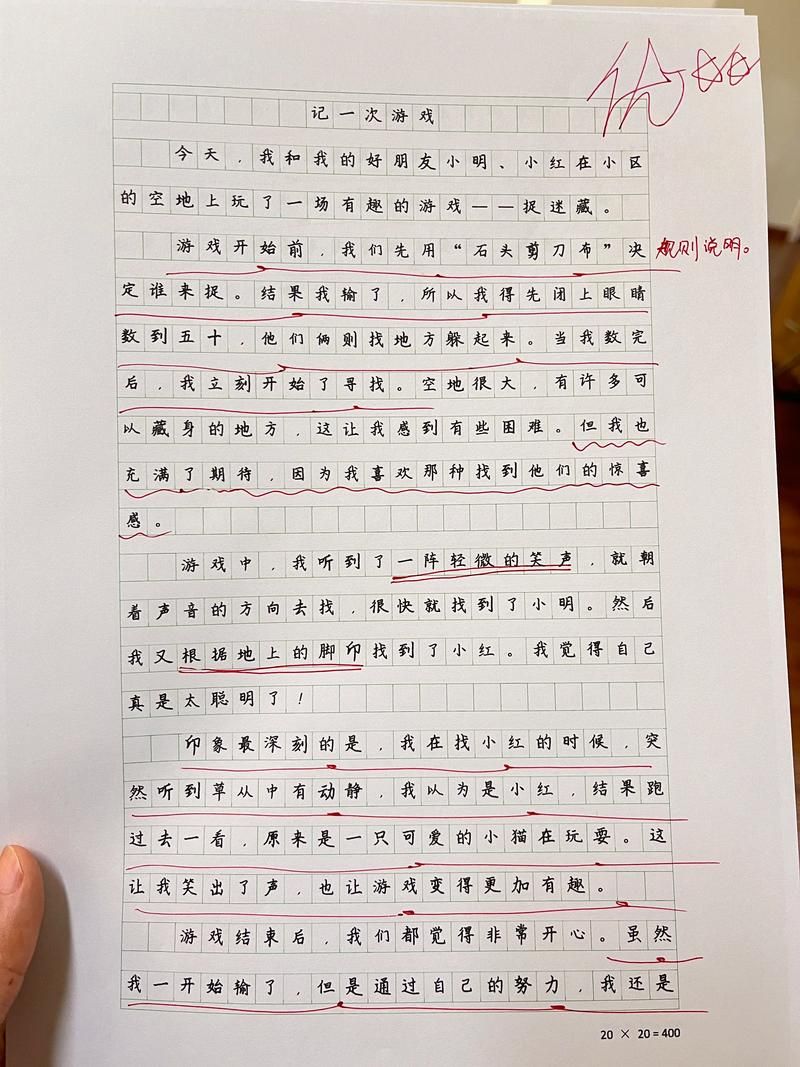 优☆☆
记一次游戏
今天，我和我的好朋友小明、小红在小区
的空地上玩了一场有趣的游戏——捉迷藏。
游戏开始前，我们先用“石头剪刀布”决 规则说明。
定谁来捉。结果我输了，所以我得先闭上眼睛
数到五十，他们俩则找地方躲起来。当我数完
后，我立刻开始了寻找。空地很大，有许多可
以藏身的地方，这让我感到有些困难。但我也
充满了期待，因为我喜欢那种找到他们的惊喜
感。
游戏中，我听到了一阵轻微的笑声，就朝
着声音的方向去找，很快就找到了小明。然后
我又根据地上的脚印找到了小红。我觉得自己
真是太聪明了！
印象最深刻的是，我在找小红的时候，突
然听到草从中有动静，我以为是小红，结果跑
过去一看，原来是一只可爱的小猫在玩耍。这
让我笑出了声，也让游戏变得更加有趣。
游戏结束后，我们都觉得非常开心。虽然
我一开始输了，但是通过自己的努力，我还是
20 × 20=400